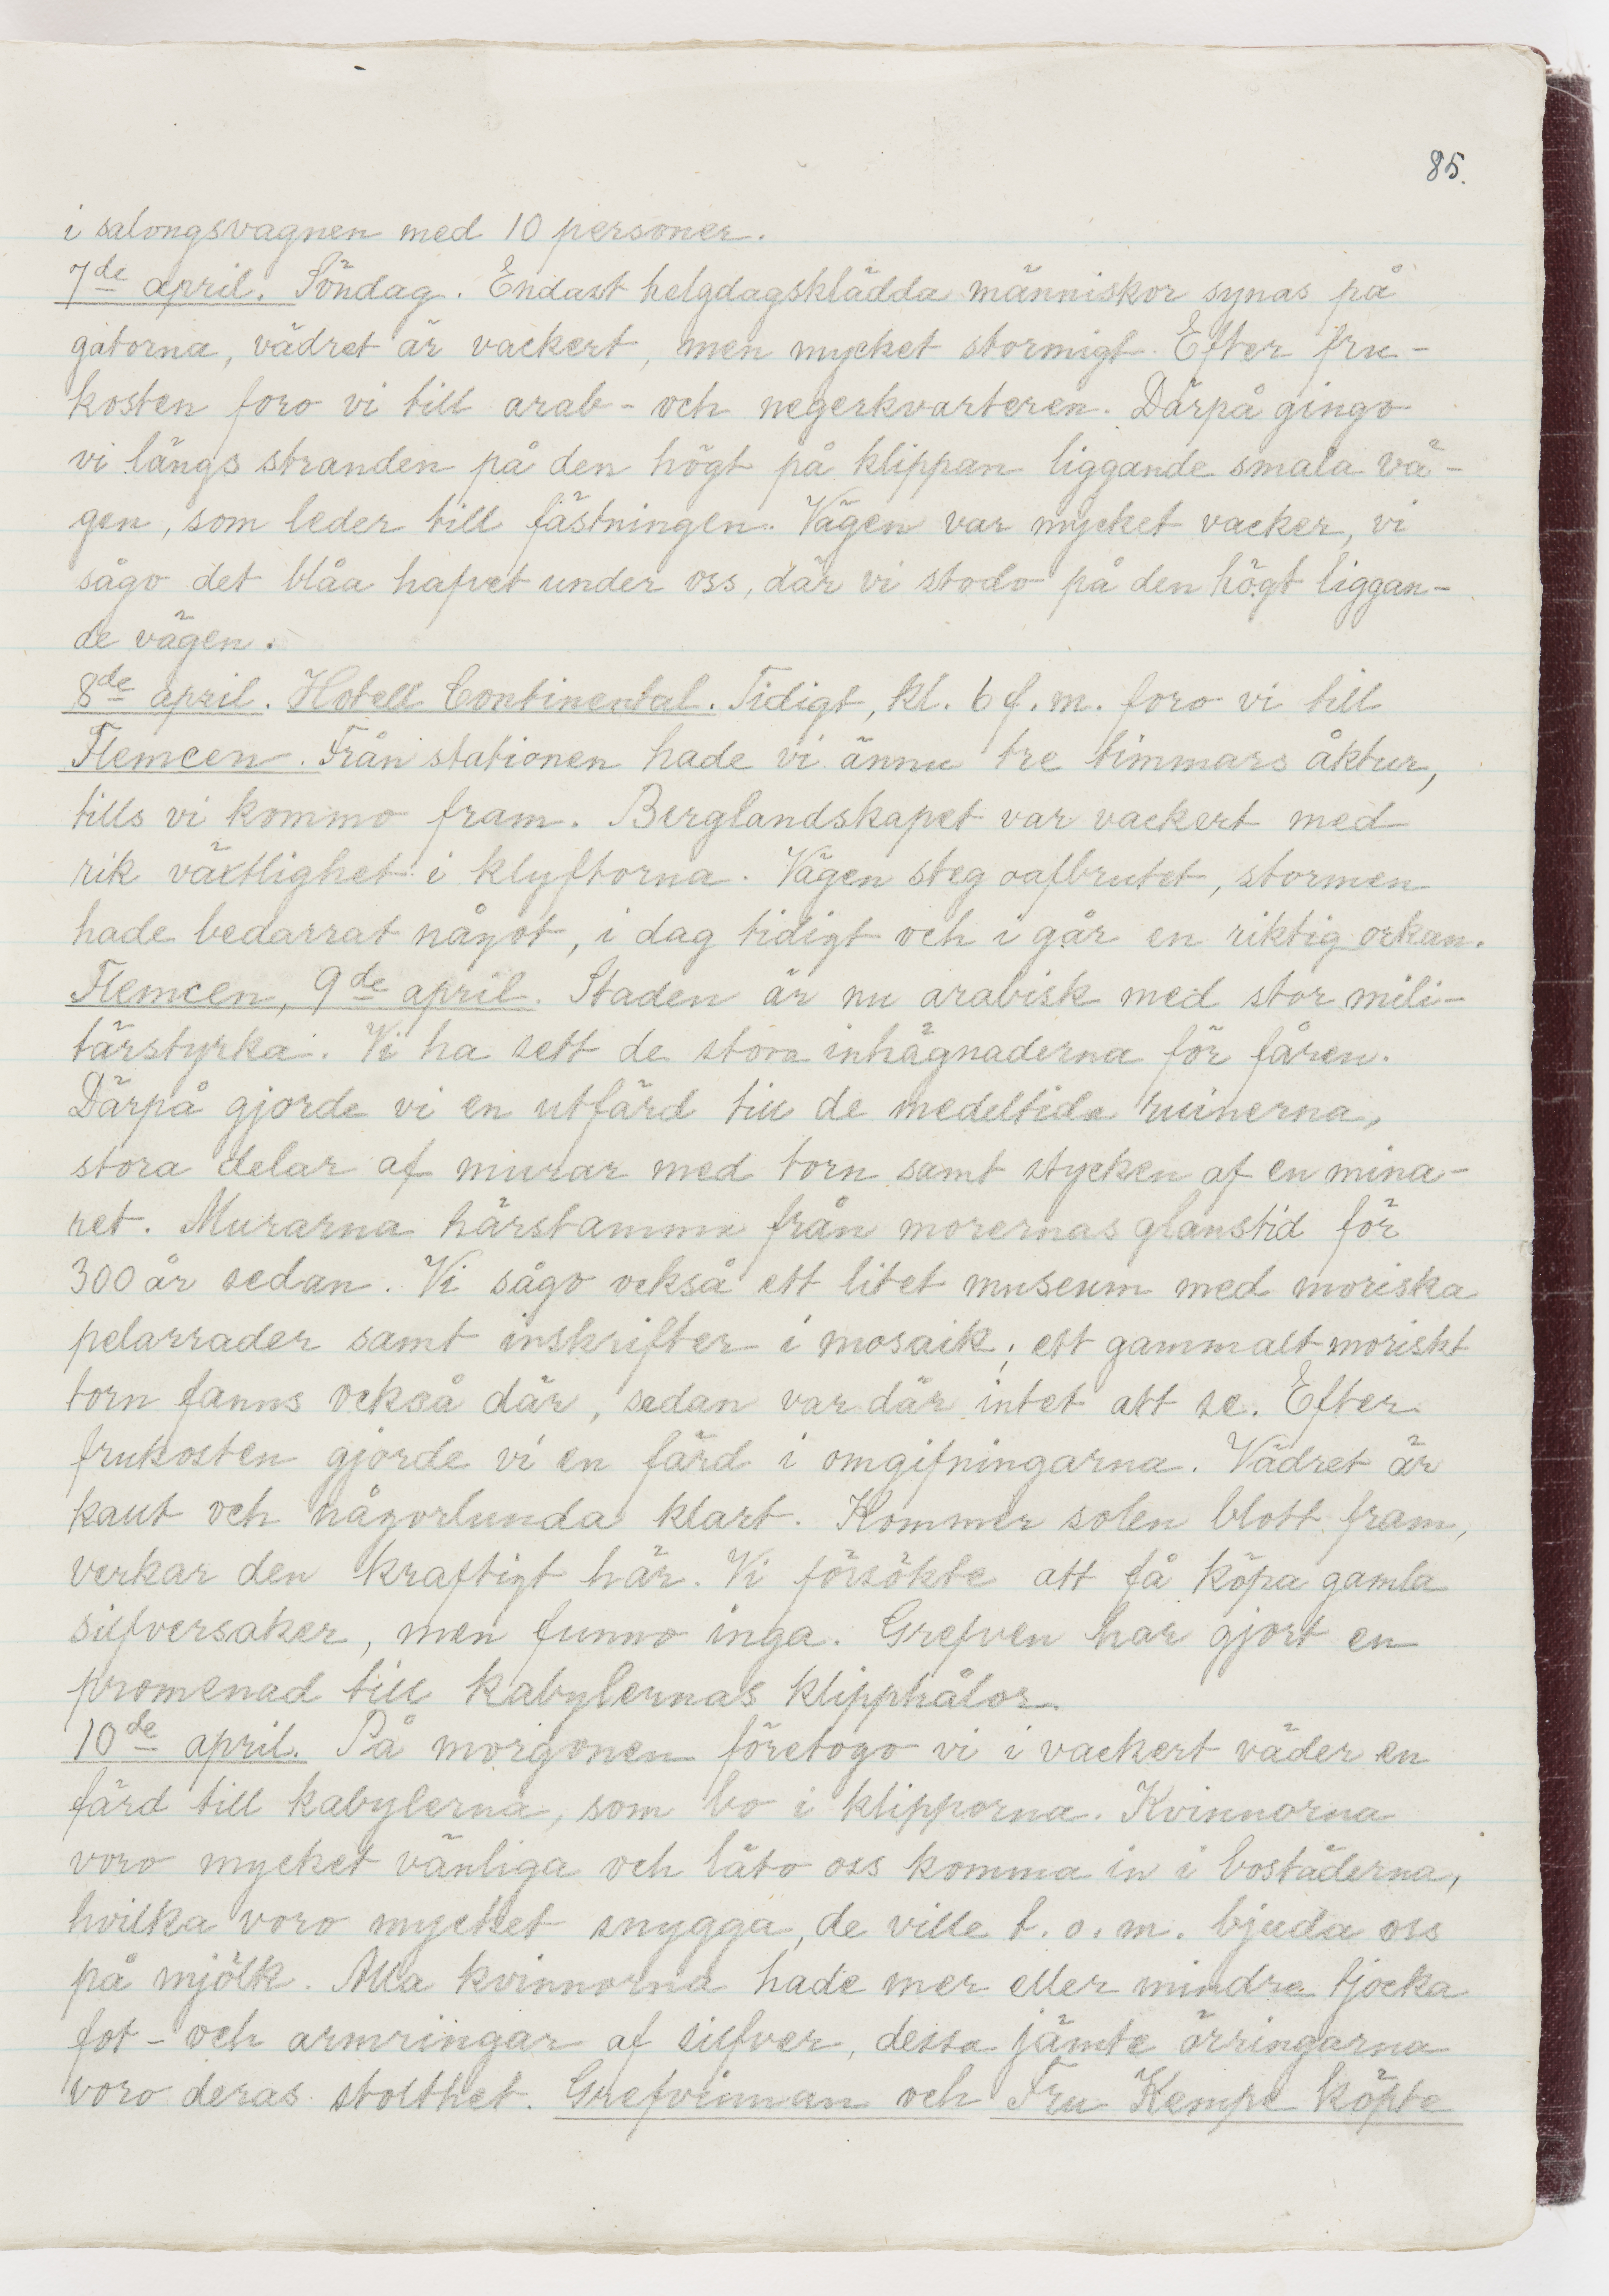 85.
i salongsvagnen med 10 personer.
7de april. Söndag. Endast helgdagsklädda människor synas på
gatorna, vädret är vackert, men mycket stormigt. Efter fru-
kosten foro vi till arab- och negerkvarteren. Därpå gingo
vi längs stranden på den högt på klippan liggande smala vä-
gen, som leder till fästningen. Vägen var mycket vacker, vi
sågo det blåa hafvet under oss, där vi stodo på den högt liggan-
de vägen.
8de april. Hotell Continental. Tidigt, kl. 6 f. m. foro vi till
Tlemcen. Från stationen hade vi ännu tre timmars åktur,
tills vi kommo fram. Berglandskapet var vackert med
rik växtlighet i klyftorna. Vägen steg oafbrutet, stormen
hade bedarrat något, i dag tidigt och i går en riktig orkan.
Tlemcen, 9de april. Staden är nu arabisk med stor mili-
tärstyrka. Vi ha sett de stora inhägnaderna för fåren.
Därpå gjorde vi en utfärd till de medeltida ruinerna,
stora delar af murar med torn samt stycken af en mina-
ret. Murarna härstamma från morernas glanstid för
300 år sedan. Vi sågo också ett litet museum med moriska
pelarrader samt inskrifter i mosaik; ett gammalt moriskt
torn fanns också där, sedan var där intet att se. Efter
frukosten gjorde vi en färd i omgifningarna. Vädret är
kallt och någorlunda klart. Kommer solen blott fram,
verkar den kraftigt här. Vi försökte att få köpa gamla
silfversaker, men funno inga. Grefven har gjort en
promenad till kabylernas klipphålor.
10de april. På morgonen företogo vi i vackert väder en
färd till kabylerna, som bo i klipporna. Kvinnorna
voro mycket vänliga och läto oss komma in i bostäderna,
hvilka voro mycket snygga, de ville t. o. m. bjuda oss
på mjölk. Alla kvinnorna hade mer eller mindre tjocka
fot- och armringar af silfver, dessa jämte örringarna
voro deras stolthet. Grefvinnan och Fru Kempe köpte